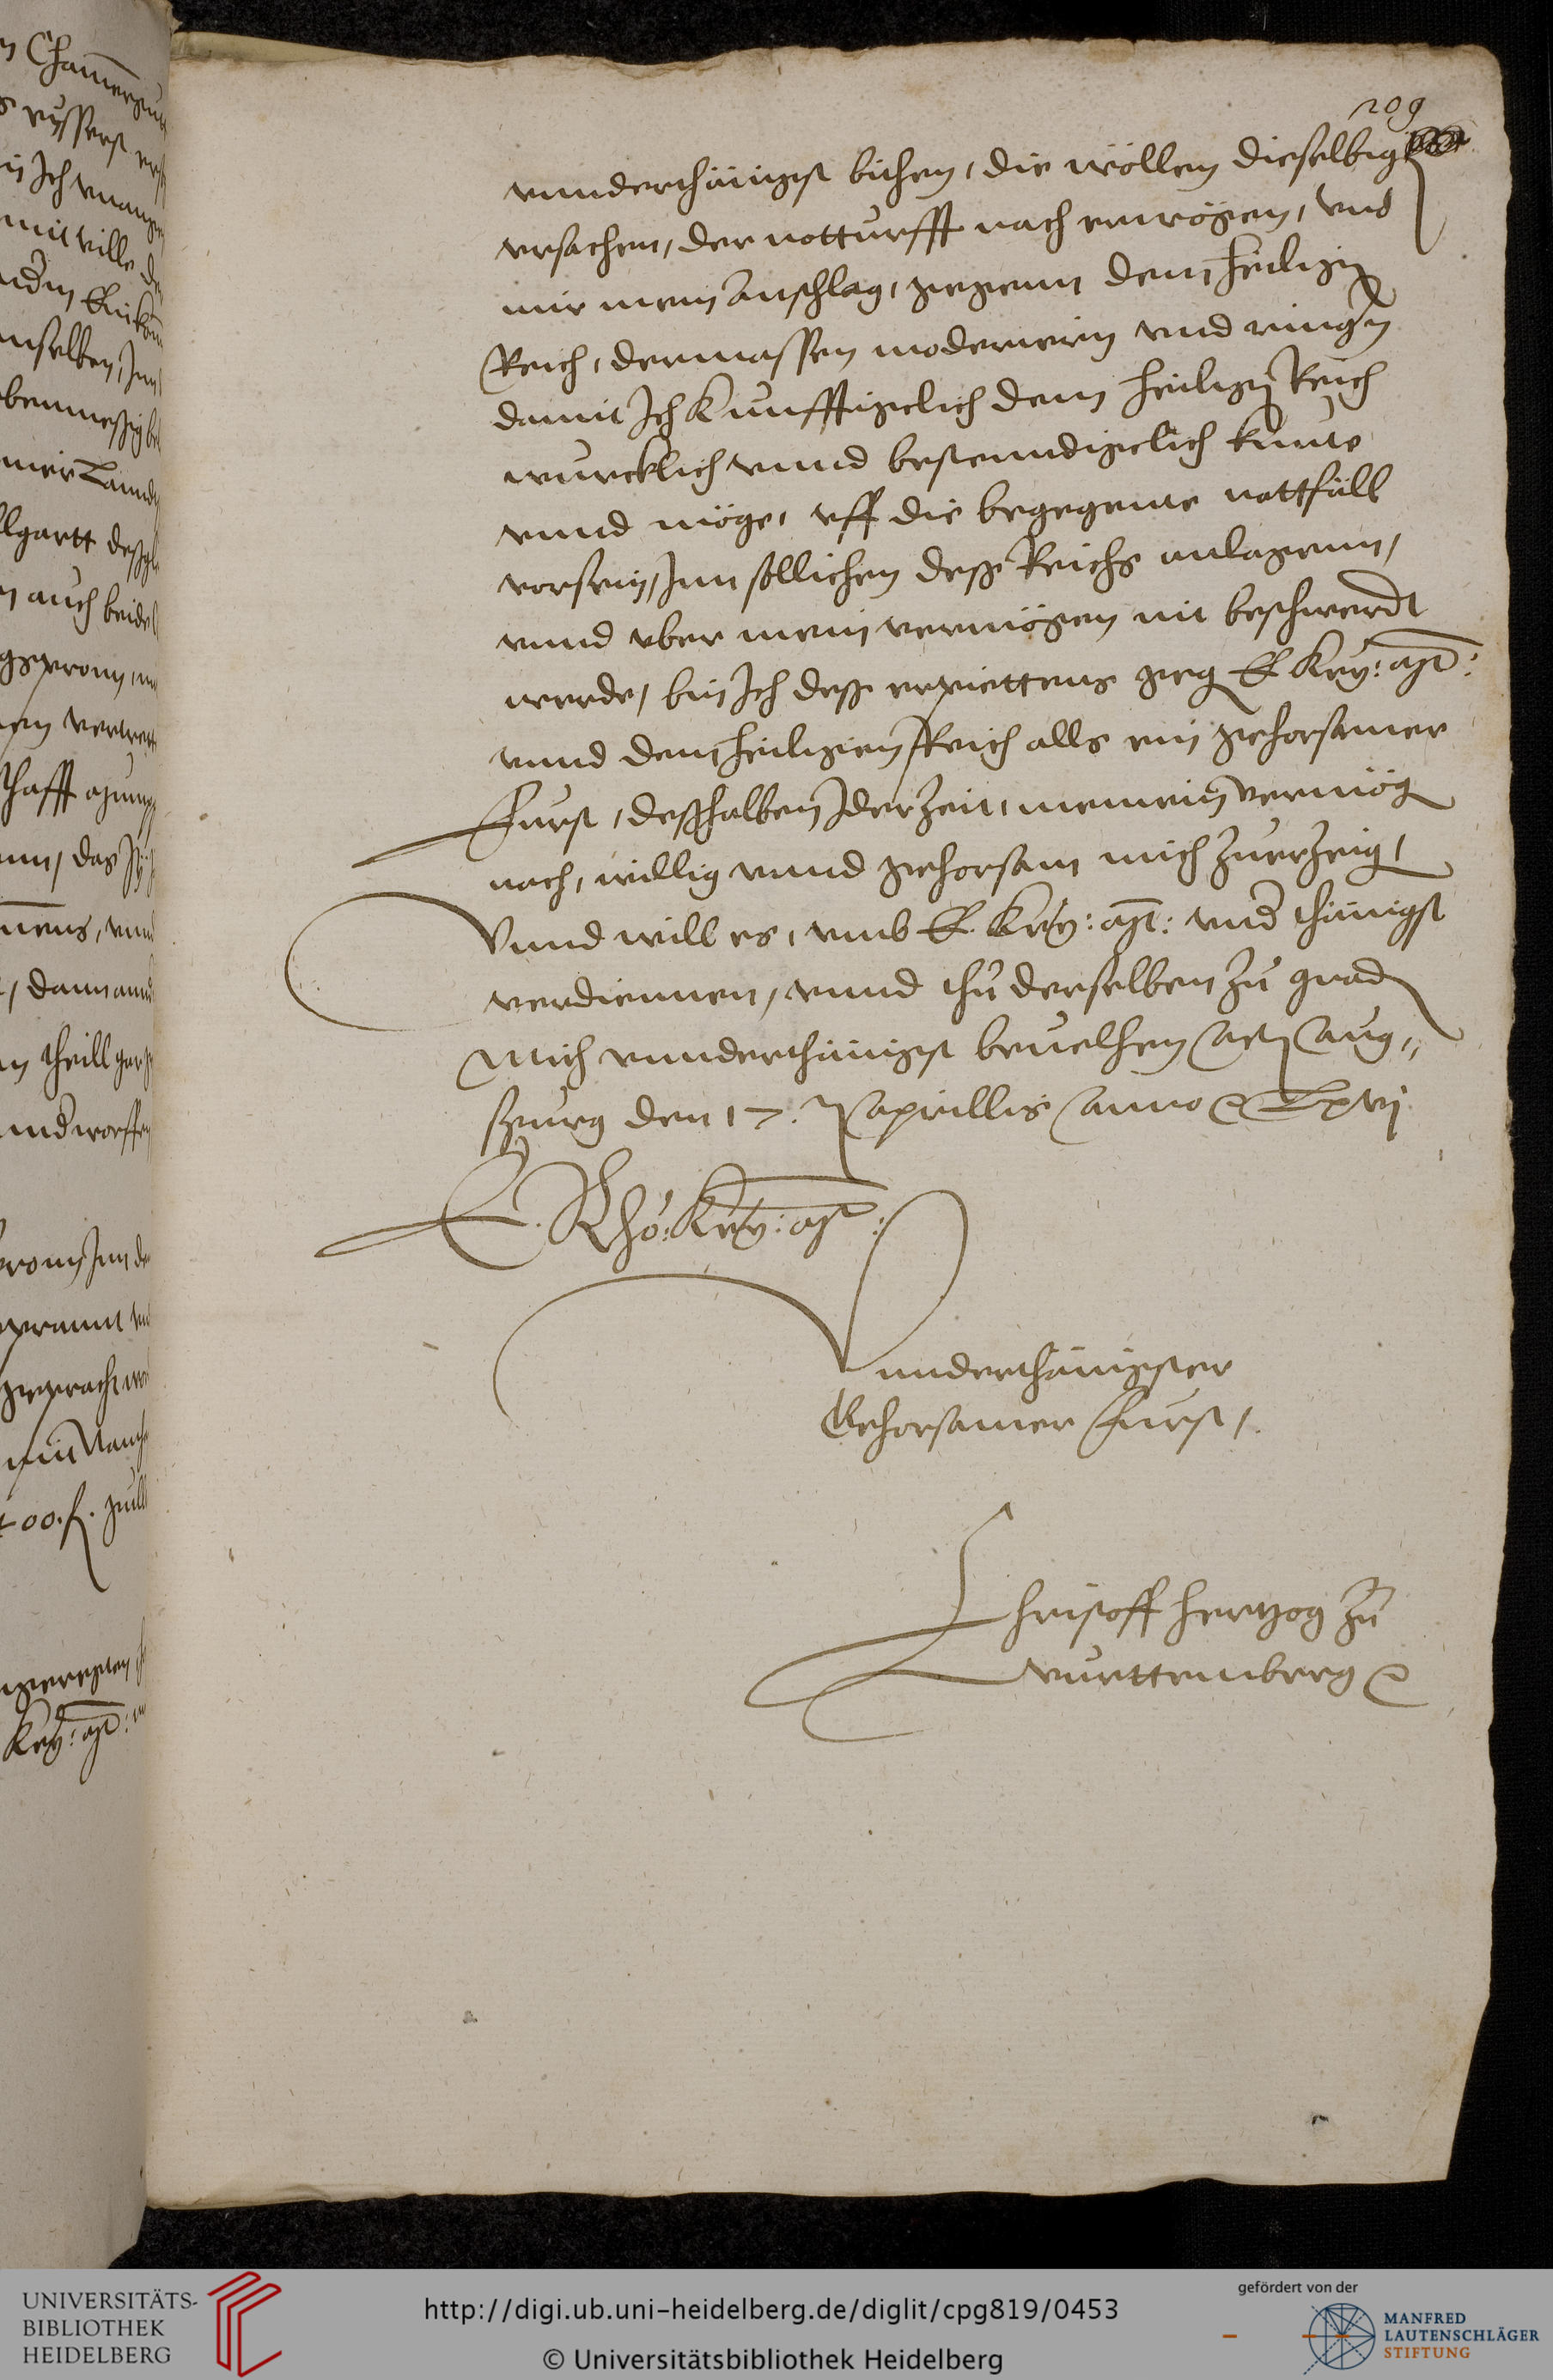 209
vnnderthänigst bithen, die wöllen dieselbige
vrsachen, der notturfft nach erwögen, vnd
mir mein Anschlag, gegenn dem heiligen
Reich, dermassen moderiern vnd ringern
damit Ich kunfftigclich dem heiligen Reich
wurcklich vnnd bestenndigclich kunde
vnnd möge, vff die begegente nottfäll
vorsein, Inn sollichen dess Reichs anlagenn,
vnnd vber mein vermögen nit beschwerdt
werde, bin Ich dess erpiettens geg E Key: Mt:
vnnd dem heiligen Reich alls ein gehorsamer
Furst, desshalben Iderzeit, meinem vermög
nach, willig vnnd gehorsam mich zuerzeig,
Vnnd will es, vmb E. Key: Mt: vnd thänigst
verdiennen, vnnd thu derselben zu gnad
Mich vnnderthänigst beuelhen Act Aug„
spurg den 17. Aprillis Anno Lxvj
E. Rhö: Key: Mt:
Vnnderthänigster
Gehorsamer Furst,
Christoff Hertzog zu
Wurttemberg
UNIVERSITÄTS-
BIBLIOTHEK
HEIDELBERG
http://digi.ub.uni-heidelberg.de/diglit/cpg819/0453
© Universitätsbibliothek Heidelberg
gefördert von der
MANFRED
LAUTENSCHLÄGER
STIFTUNG